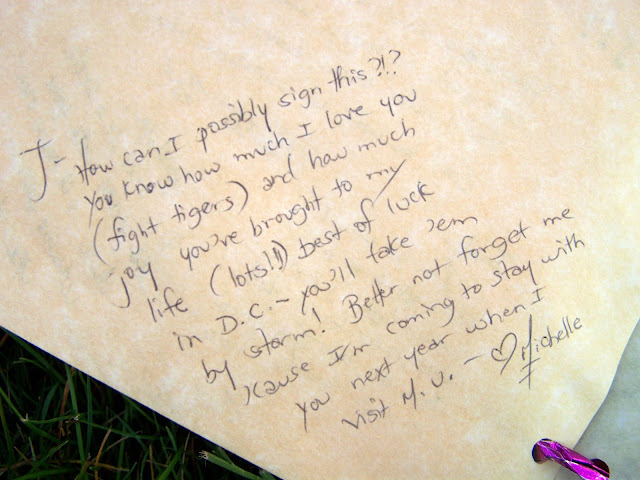 J- How can I possibly sign this?!?
You know how much I love you
(fight tigers) and how much
joy you've brought to my
life (lots!!!) best of luck
in D.C. - you'll take 'em
by storm! Better not forget me
'cause I'm coming to stay with
you next year when I
visit M.U. - ♡ Michelle